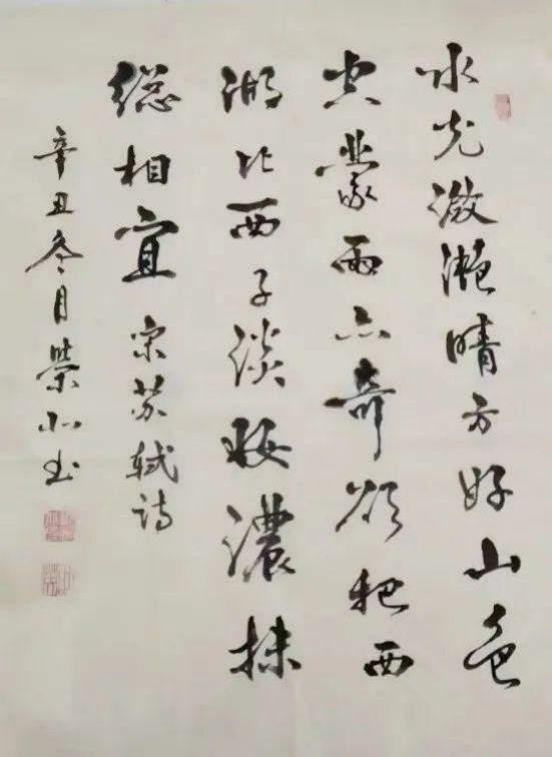 水光潋滟晴方好山色
空蒙雨亦奇欲把西
湖比西子淡妆濃抹
總相宜 宋苏轼诗
辛丑冬月荣书